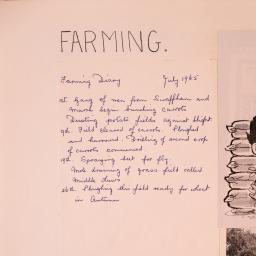 FARMING.
Farming Diary July 1965
1st. Gang of men from Swaffham and
March begin bunching carrots
Dusting potato fields against blight
9th. Field cleared of carrots. Ploughed
and harrowed. Drilling of second crop
of carrots commenced
19th. Spraying beet for fly.
Mole draining of grass field called
Middle
26th. Ploughing this field ready for wheat
in Autumn